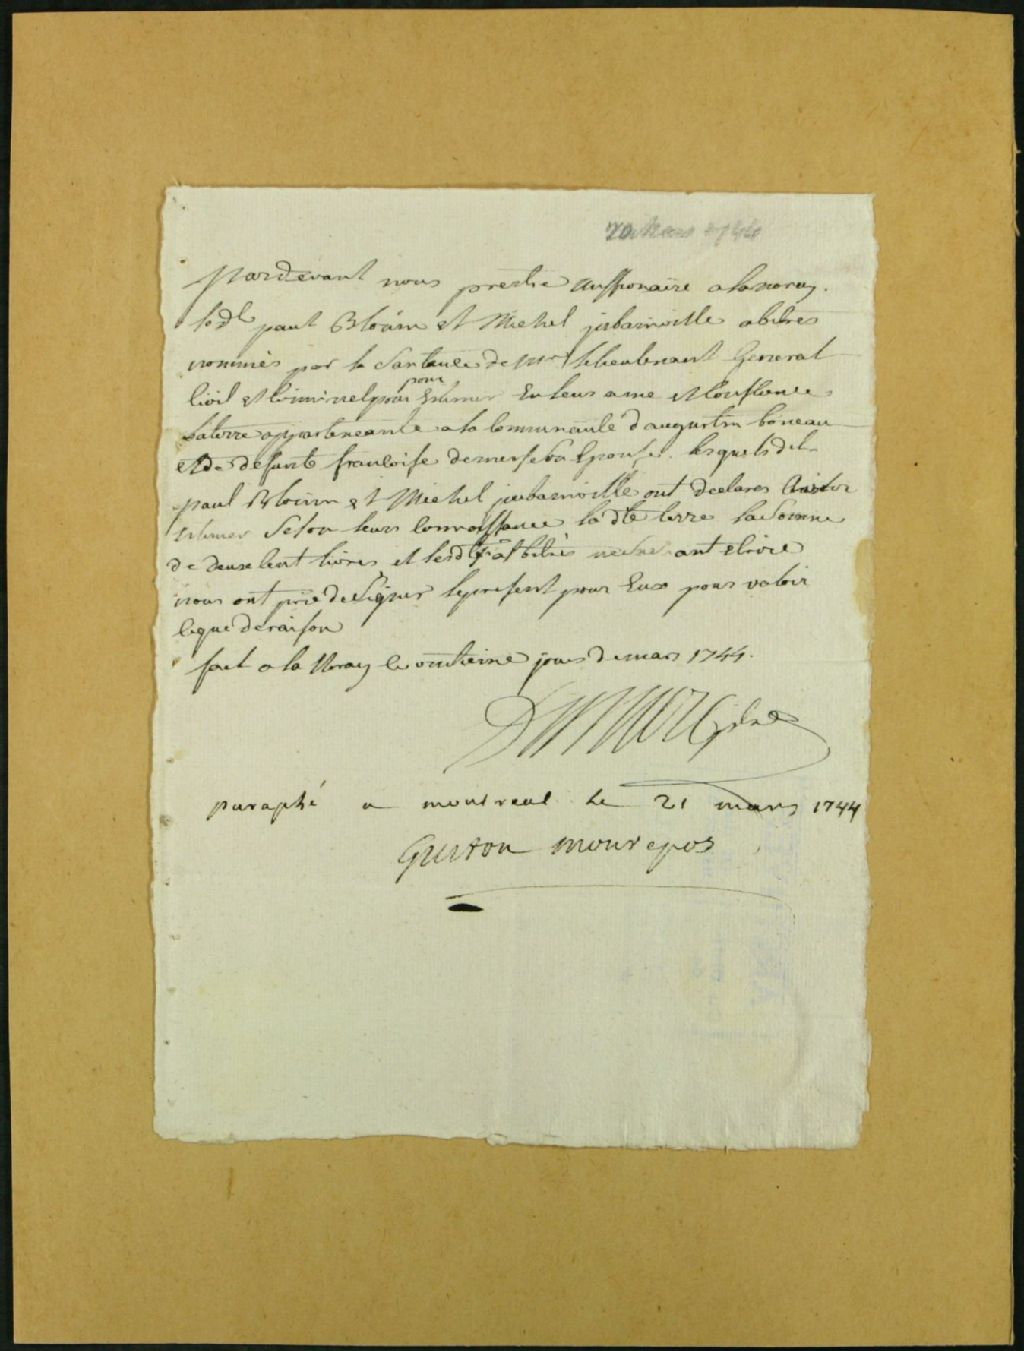 mars 1744
pardevant nous prestre missionaire a lanoray
led paul Blouin et Michel jabainville abitres
nommés par la Santance de mr le lieutenant General
Civil et Criminel pour pour Estimer En leurs ame et Consience
la terre appartenante a la Communauté d'augustin
et de defunte francoise Son Epouse. lesquels dit
paul Blouin et Michel jabainville ont declarer
Estimer Selon leurs Connoissance la dte terre la Somme
de deux Cent livres et lesdts arbitres ne Sachant Ecrire
nous ont prie de Signer le present pour Eux pour valoir
Ce que de raison
fait a la Noray le onzieme jour de mars 1744.
paraphé a montreal le 21 mars 1744
Guiton Monrepos